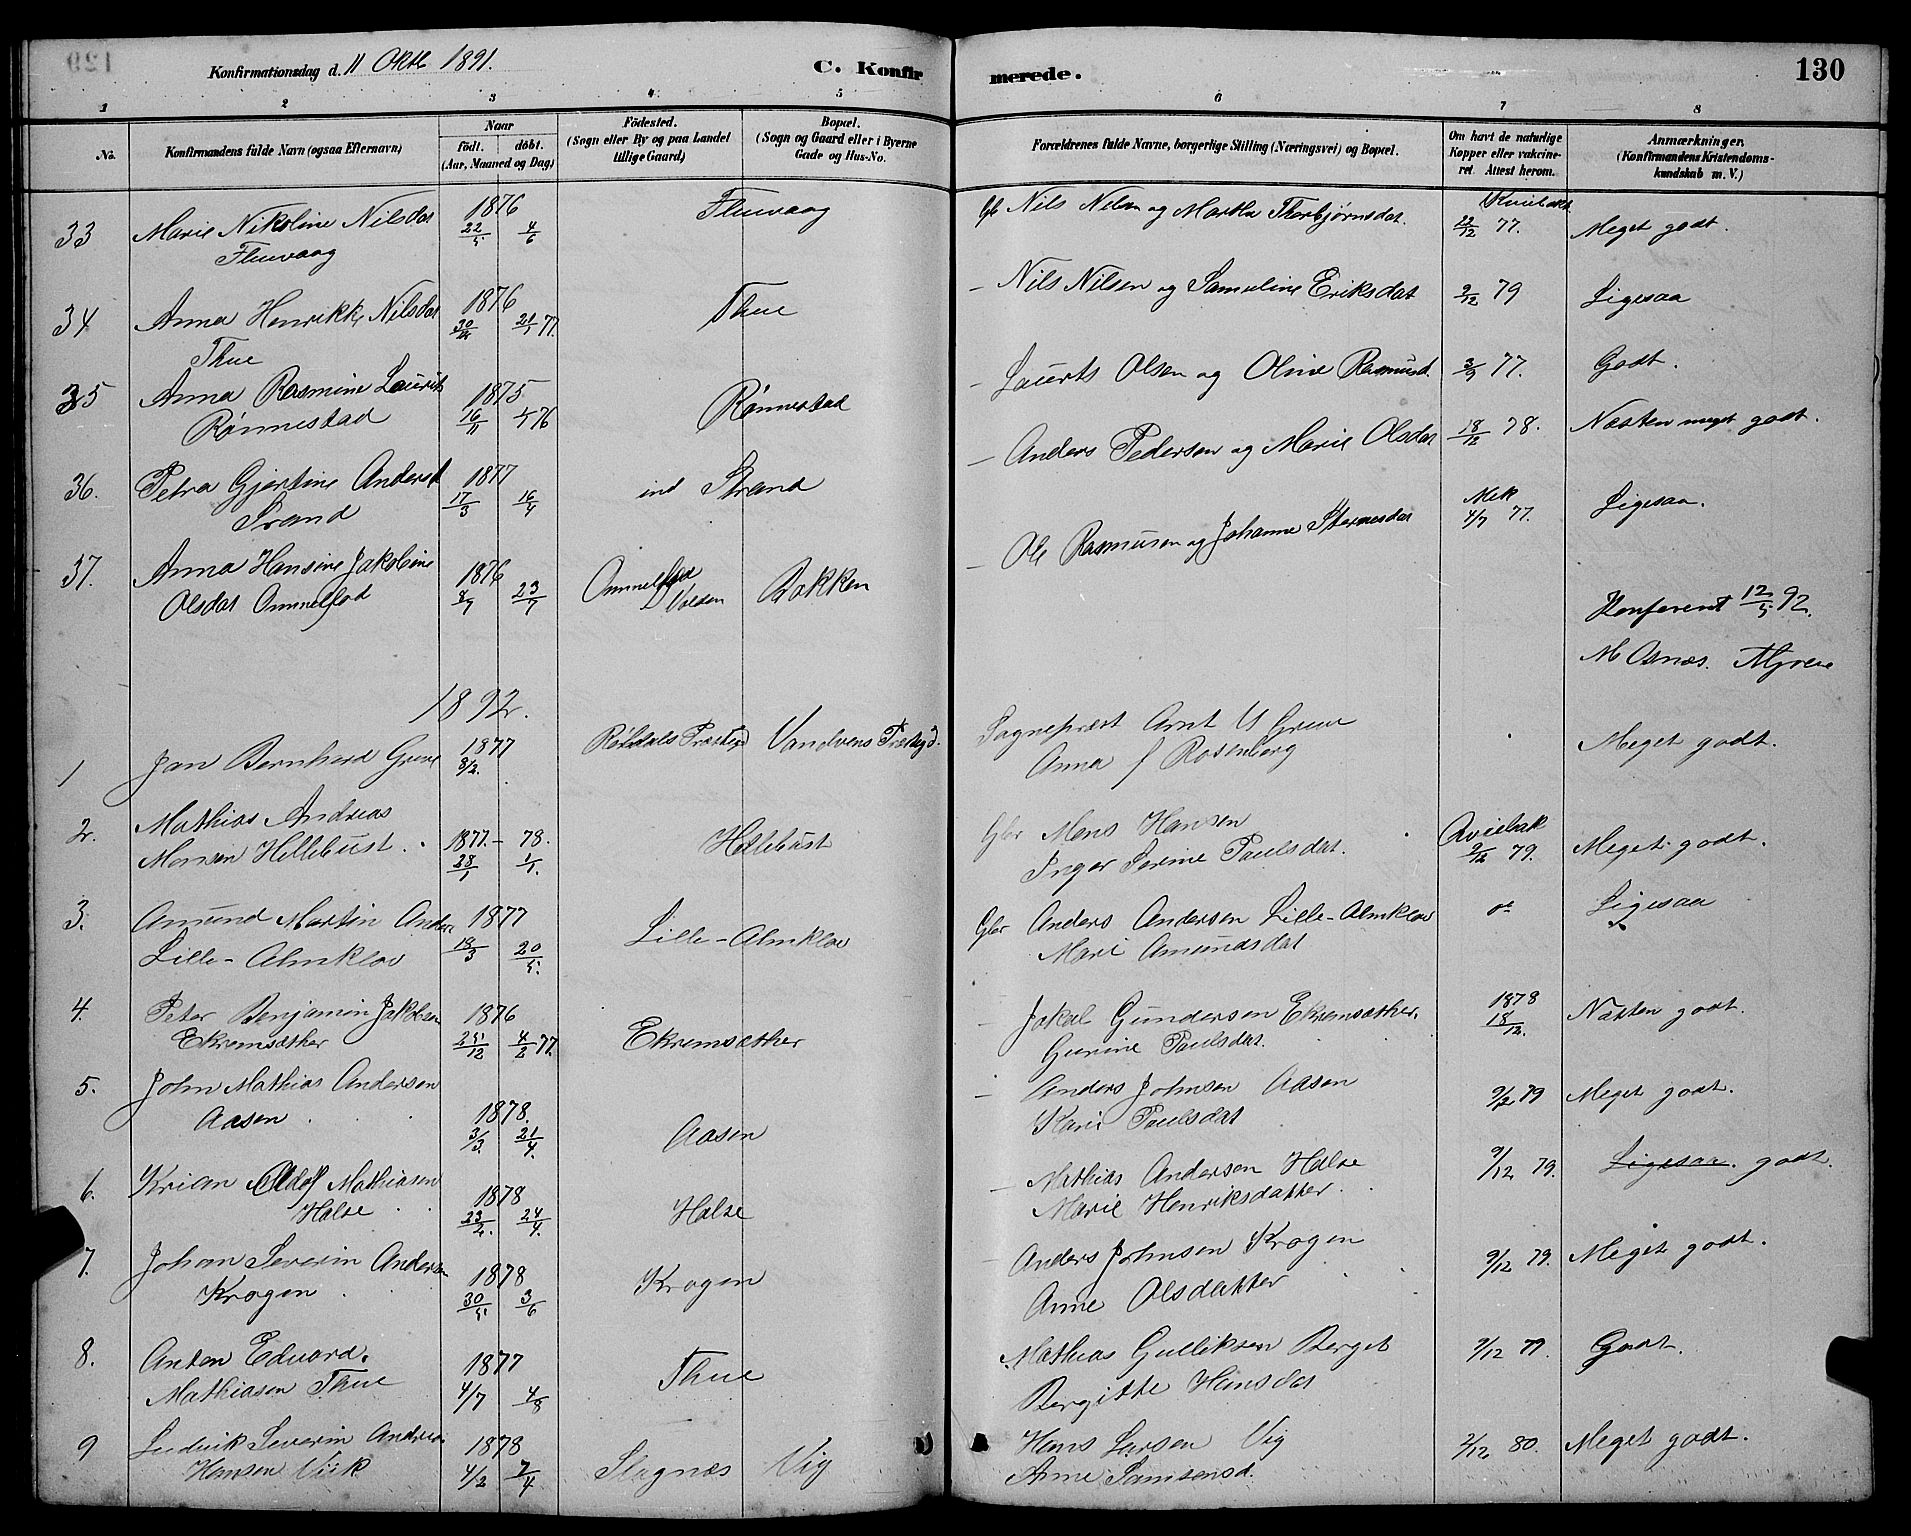 Konfirmationsdag d. 11 Oktb 1891.
C. Konfir
merede.
130
1 2 3 4 5 6 7 8
No.
Konfirmandens fulde Navn (ogsaa Efternavn)
Naar
födt. döbt.
(Aar, Maaned og Dag)
Födested.
(Sogn eller By og paa Landet
tillige Gaard)
Bopæl.
(Sogn og Gaard eller i Byerne
Gade og Hus-No.
Forældrenes fulde Navne, borgerlige Stilling (Næringsvei) og Bopæl.
Om havt de naturlige
Kopper eller vakcine-
ret. Attest herom.
Anmærkninger.
(Konfirmandens Kristendoms-
kundskab m. V.)
33 Marie Nikoline Nilsdat 1876 22/5 4/6 Fluevaag Nils Nilsen og Martha Thorbjørnsdat. 12/12 77. Meget godt.
Fluevaag
34 Anna Henrikke Nilsdat 1876 30/12 21/1 77. Thue - Nils Nilsen og Samuline Eriksdat 2/12 79 Ligesaa
Thue
35 Anna Rasmine Laurits 1875 16/11 76 Rønnestad - Laurits Olsen og Oline Rasmusd. 3/9 77. Godt.
Rønnestad
36. Petra Gjertine Andersd 1877 17/3 16/4 ind Strand - Anders Pedersen og Marie Olsdat 18/12 78. Næsten meget godt.
Strand
37. Anna Hansine Jakobine 1876 8/7 23/7 Ommelfod Volden Bakken - Ole Rasmusen og Johanne Starnesdat Mek 4/7 77. Ligesaa.
Olsdat Ommelfod
Konfereret 12/5 92.
M Osnæs.
1892.
1 Jan Bernhard Greve 1877 8/2. Røldals Præstegd Vandvens Præstegd. Sognepræst Arnt U Greve Meget godt.
Anna f Rosenberg
2. Mathias Andreas Gbr Mons Hansen Qveibak
Monsen Hellebust. 1877.- 78. 28/1 1/1. Hellebust Inger Serine Paulsdat. 9/12 79. Meget godt.
3. Amund Martin Anders 1877 Lille-Almklov Gbr Anders Andersen Lille-Almklov do Ligesaa
Lille-Almklov 18/3 20/5. Mari Amundsdat
4. Peter Benjamin Jakobsen 1876 - Jakob Gundersen Ekremsæther. 1878 Næsten godt.
Ekremsæther 25/12 4/2 77. Ekremsæther Gurine Paulsdat. 18/12.
5. John Mathias Andersen - Anders Johnsen Aasen 9/12 79 Meget godt.
Aasen 1878. 3/3. 21/4. Aasen Kari Paulsdat
6. Krian Adolf Mathiasen 1878 - Mathias Andersen Halse 9/12 79. Ligesaa. godt.
Halse 23/2. 24/4. Halse Marie Henriksdatter
7. Johan Severin Andersen 1878 - Anders Johnsen Krogen 9/12 79. Meget godt.
Krogen 30/5. 3/6 Krogen Anne Olsdatter
8. Anton Edvard. 1877 Thue Mathias Gulliksen Berget 9/12 79. Godt.
Mathiasen Thue 4/7 4/8 Bergitte Hansdat
9 Ludvik Severin Andreas 1878 Hans Larsen Vig 2/12 80. Meget godt.
Hansen Viik 4/2 7/4 Slagnæs Vig Anne Samsonsd.